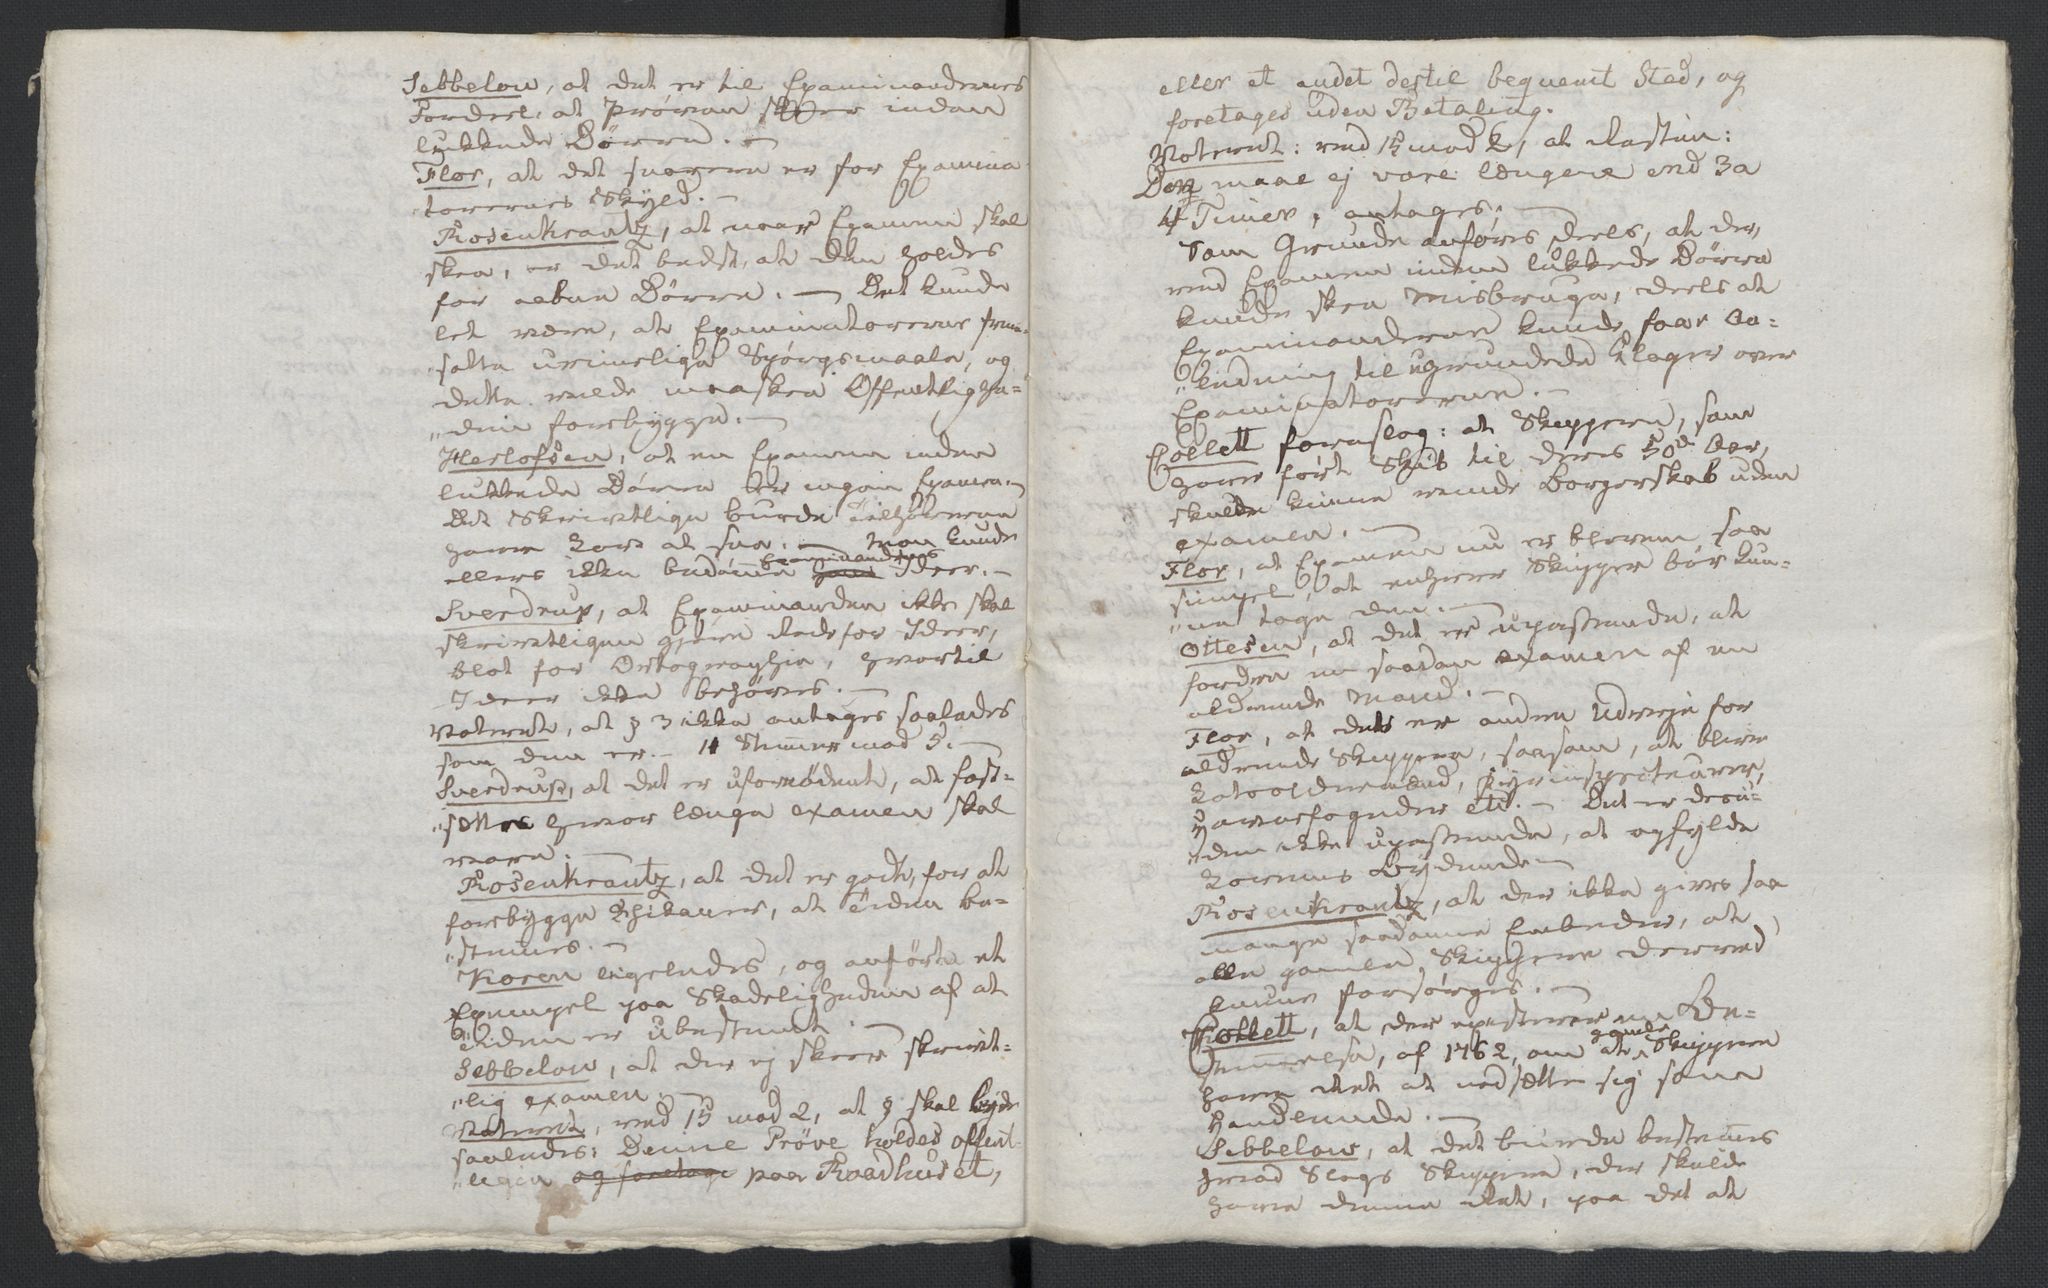 Sebbelow, at det er til Examinandernes
Fordeel, at Prøven skeer inden
lukkede Dørre. —
Flor, at det snarere er for Examina
torernes Skyld. —
Rosenkrantz, at naar Examen skal
skee, er det bedst, at den holdes
for aabne Dørre. — Det kunde
let være, at Examinatorerne frem=
„satte urimelige Spørgsmaale, og
dette vilde maaskee Offentlighe=
„den forebygge. —
Herlofsen, at en Examen inden
lukkede Dørre er ingen Examen. —
Det Skrivtlige burde Tilhørerne
have Lov at see. — Man kunde
ellers ikke bedømme Examinandens Ideer. —
Sverdrup, at Examinanden ikke skal
skrivtligen gjøre Rede for Ideer,
blot for Ortographie, hvortil
Ideer ikke behøves. —
Voteret, at § 3 ikke antages saaledes
som den er. — 11 Stemmer mod 5. —
Sverdrup, at det er ufornødent, at fast=
„sættes hvor længe Examen skal
vare. —
Rosenkrantz, at det er godt, for at
forebygge Chikaner, at Tiden be=
„stemmes. —
Koren ligeledes, og anførte et
Exempel paa Skadeligheden af at
Tiden er ubestemt. —
Sebbelow, at der ej skeer skrivt=
„lig Examen. —
Voteret, med 15 mod 2, at § skal lyde
saaledes: Denne Prøve holdes offent=
„ligen og foretage paa Raadhuset,
eller et andet dertil beqvemt Sted, og
foretages uden Betaling.
Voteret: med 15 mod 2, at Passus:
Den maae ej vare længere end 3 a
4 Timer, antages. —
Som Grunde anføres deels, at der,
ved Examen inden lukkede Dørre
kunde skee Misbruge, deels at
Examinanderne kunde faae An=
„ledning til ugrundede Klager over
Examinatorerne. —
Collett foreslog: at Skippere, som
have ført Skib til deres 50de Aar,
skulde kunne vinde Borgerskab uden
Examen. —
Flor, at Examen nu er bleven saa
simpel, at enhver Skipper bør kun=
„ne tage den. —
Ottesen, at det er upassende, at
fordre en saadan Examen af en
aldrende Mand. —
Flor, at der er anden Udveje for
aldrende Skippere, saasom, at blive
Lodsoldermænd, Fyrinspecteurer,
Havnefogder etc. — Det er desu=
„den ikke upassende, at opfylde
Lovenes Bydende —
Rosenkrantz, at der ikke gives saa
mange saadanne Embeder, at
alle gamle Skippere derved
kunne forsørges. —
Collett, at der existerer en Be=
stemmelse, af 1762, om at gamle Skippere
have Ret at nedsætte sig som
Handlende. —
Sebbelow, at det burde bestemmes
hvad Slags Skippere, der skulde
have denne Ret, paa det at